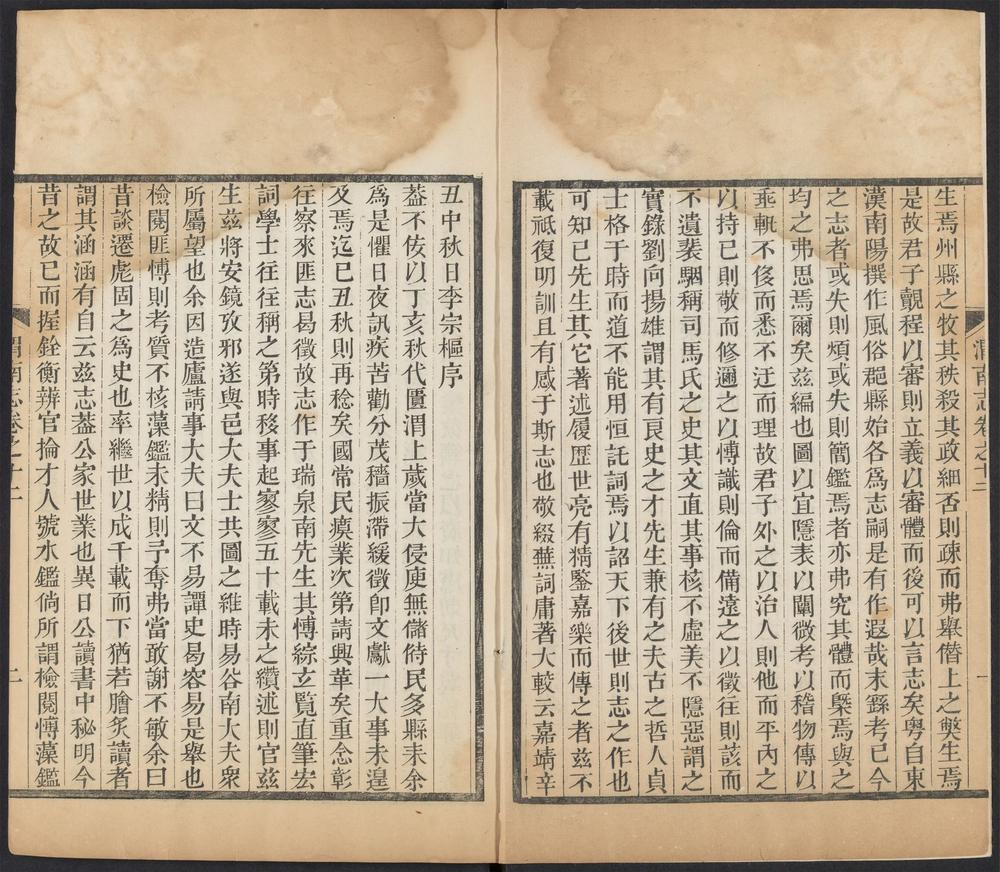 生焉州縣之牧其秩殺其政細否則疎而弗舉僭上之獘生焉
是故君子觀程以審則立義以審體而後可以言志矣粤自東
漢南陽撰作風俗郡縣始各爲志嗣是有作遐哉末繇考已今
之志者或失則煩或失則簡鑑焉者亦弗究其體而槩焉與之
均之弗思焉爾矣兹編也圖以宜隱表以闡微考以稽物傳以
乖軏不俊而悉不迂而理故君子外之以治人則他而平內之
以持已則敬而修邇之以愽識則倫而備遠之以徵往則該而
不遺裴駰稱司馬氏之史其文直其事核不虛美不隱惡謂之
實錄劉向揚雄謂其有良史之才先生兼有之夫古之哲人貞
士格于時而道不能用恒託詞焉以詔天下後世則志之作也
可知已先生其它著述履歷世亮有精鑒嘉樂而傳之者兹不
載祗復明訓且有感于斯志也敬綴蕪詞庸著大較云嘉靖辛
渭南志卷之十二
一
丑中秋日李宗樞序
葢不佞以丁亥秋代匱渭上歲當大侵庾無儲偫民多縣耒余
爲是懼日夜訊疾苦勸分茂穡振滯緩徵卽文獻一大事未遑
及焉迄已丑秋則再稔矣國常民瘼業次第請興革矣重念彰
往察來匪志曷徵故志作于瑞泉南先生其愽綜玄覽直筆宏
詞學士往往稱之第時移事起寥寥五十載未之纘述則官兹
生兹將安鏡攷邪遂與邑大夫士共圖之維時易谷南大夫衆
所屬望也余因造廬請事大夫曰文不易譚史曷容易是舉也
檢閱匪愽則考質不核藻鑑未精則予奪弗當敢謝不敏余曰
昔談遷彪固之爲史也率繼世以成千載而下猶若膾炙讀者
謂其涵涵有自云兹志葢公家世業也異日公讀書中秘明今
昔之故已而握銓衡辨官掄才人號水鑑倘所謂檢閱愽藻鑑
渭南志卷之十二
二